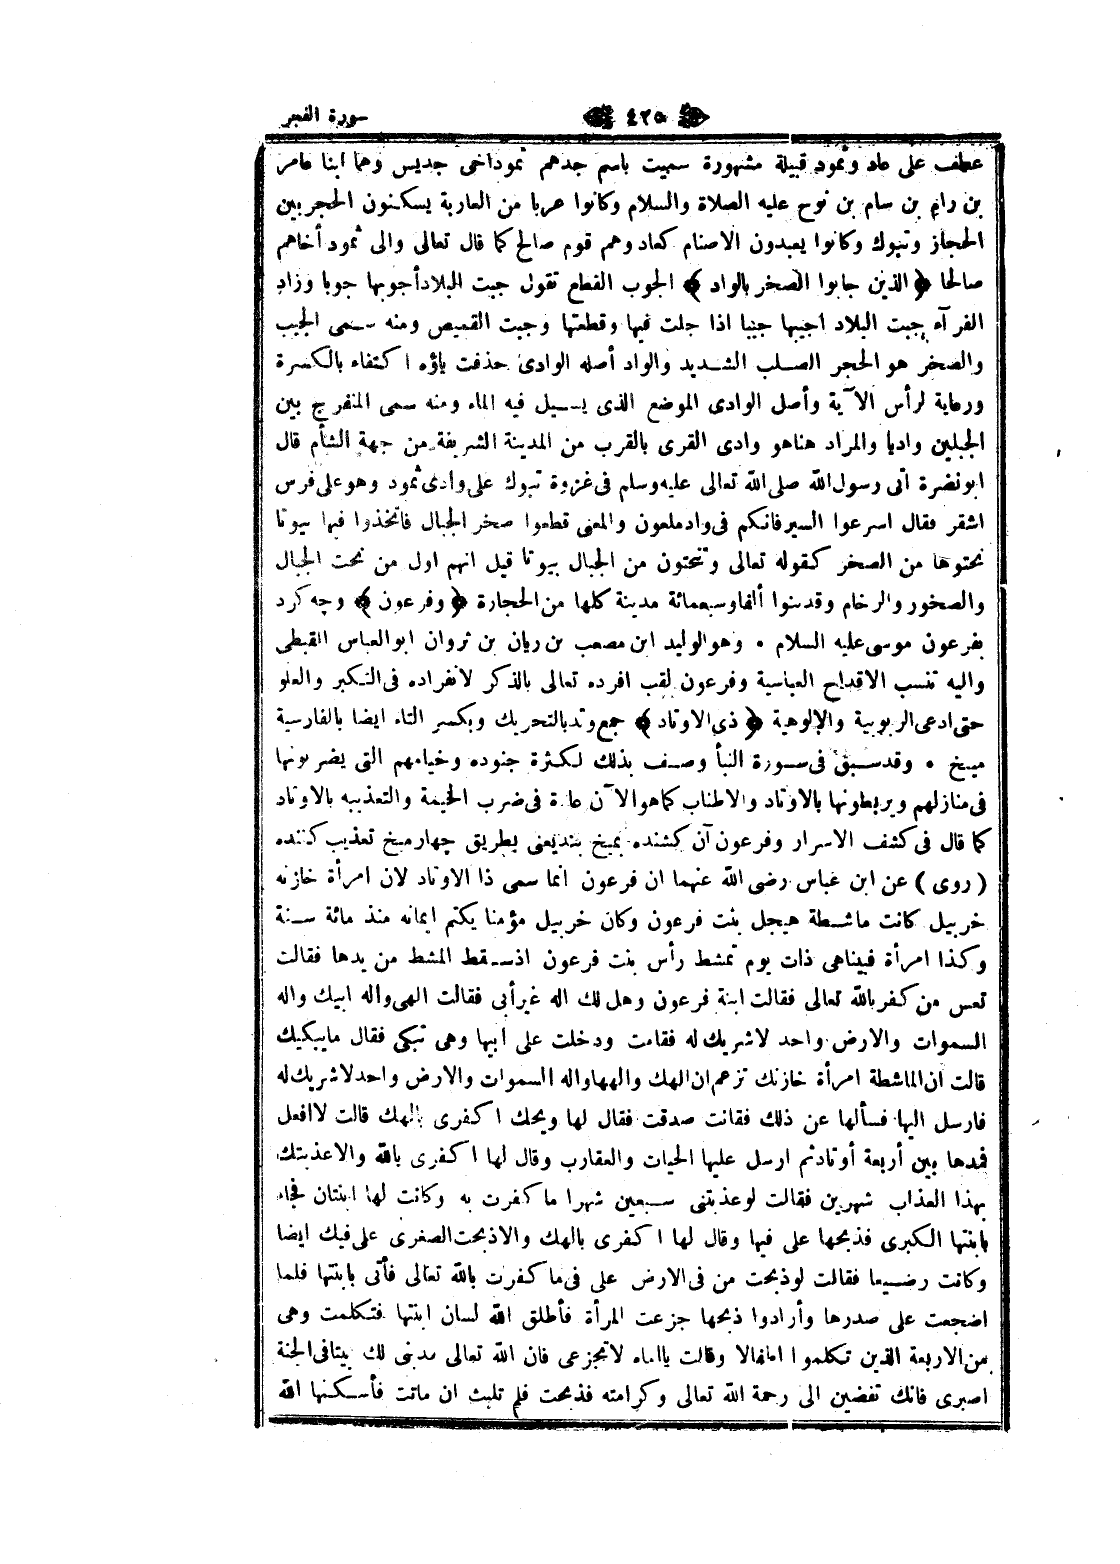 سورة الفجر ٤٢٥
عطف على عاد وثمود قبيلة مشهورة سميت باسم جدهم ثمود اخى جديس وهما ابنا عامر
بن رام بن سام بن نوح عليه الصلاة والسلام وكانوا عربا من العاربة يسكنون الحجر بين
الحجاز وتبوك وكانوا يعبدون الاصنام كعاد وهم قوم صالح كما قال تعالى والى ثمود أخاهم
صالحا ﴿ الذين جابوا الصخر بالواد ﴾ الجوب القطع تقول جبت البلاد أجوبها جوبا وزاد
الفرآء جبت البلاد اجيبها جيبا اذا جلت فيها وقطعتها وجبت القميص ومنه سمى الجيب
والصخر هو الحجر الصلب الشديد والواد أصله الوادى حذفت ياؤه اكتفاء بالكسرة
ورعاية لرأس الآية وأصل الوادى الموضع الذى يسيل فيه الماء ومنه سمى المنفرج بين
الجبلين واديا والمراد هنا هو وادى القرى بالقرب من المدينة الشريفة من جهة الشأم قال
ابو نضرة أتى رسول الله صلى الله تعالى عليه وسلم فى غزوة تبوك على وادى ثمود وهو على فرس
اشقر فقال اسرعوا السير فانكم فى واد ملعون والمعنى قطعوا صخر الجبال فاتخذوا فيها بيوتا
نحتوها من الصخر كقوله تعالى وتنحتون من الجبال بيوتا قيل انهم اول من نحت الجبال
والصخور والرخام وقد بنوا ألفا وسبعمائة مدينة كلها من الحجارة ﴿ وفرعون ﴾ وچه كرد
بفرعون موسى عليه السلام • وهو الوليد ابن مصعب بن ريان بن ثروان ابو العباس القبطى
واليه تنسب الاقداح العباسية وفرعون لقب افرده تعالى بالذكر لانفراده فى التكبر والعلو
حتى ادعى الربوبية والالوهية ﴿ ذى الاوتاد ﴾ جمع وتد بالتحريك وبكسر التاء ايضا بالفارسية
ميخ • وقد سبق فى سورة النبأ وصف بذلك لكثرة جنوده وخيامهم التى يضربونها
فى منازلهم ويربطونها بالاوتاد والاطناب كما هو الآن عادة فى ضرب الخيمة والتعذيبه بالاوتاد
كما قال فى كشف الاسرار وفرعون آن كشنده بميخ بند يعنى بطريق چهار ميخ تعذيب كننده
( روى ) عن ابن عباس رضى الله عنهما ان فرعون انما سمى ذا الاوتاد لان امرأة خازنه
خربيل كانت ماشطة هيجل بنت فرعون وكان خربيل مؤمنا يكتم ايمانه منذ مائة سنة
وكذا امرأة فبيناهى ذات يوم تمشط رأس بنت فرعون اذ سقط المشط من يدها فقالت
تعس من كفر بالله تعالى فقالت ابنة فرعون وهل لك اله غير أبى فقالت الهى واله ابيك واله
السموات والارض واحد لا شريك له فقامت ودخلت على ابيها وهى تبكى فقال ما يبكيك
قالت ان الماشطة امرأة خازنك تزعم ان الهك والهها واله السموات والارض واحد لا شريك له
فارسل اليها فسألها عن ذلك فقالت صدقت فقال لها ويحك اكفرى بالهك قالت لا افعل
فمدها بين أربعة أوتاد ثم ارسل عليها الحيات والعقارب وقال لها اكفرى بالله والا عذبتك
بهذا العذاب شهرين فقالت لو عذبتنى سبعين شهرا ما كفرت به وكانت لها ابنتان فجاء
بابنتها الكبرى فذبحها على فيها وقال لها اكفرى بالهك والا ذبحت الصغرى على فيك ايضا
وكانت رضيعا فقالت لو ذبحت من فى الارض على فى ما كفرت بالله تعالى فأتى بابنتها فلما
اضجعت على صدرها وأرادوا ذبحها جزعت المرأة فأطلق الله لسان ابنتها فتكلمت وهى
من الاربعة الذين تكلموا اطفالا وقالت يا اماه لا تجزعى فان الله تعالى قد بنى لك بيتا فى الجنة
اصبرى فانك تفضين الى رحمة الله تعالى وكرامته فذبحت فلم تلبث ان ماتت فأسكنها الله